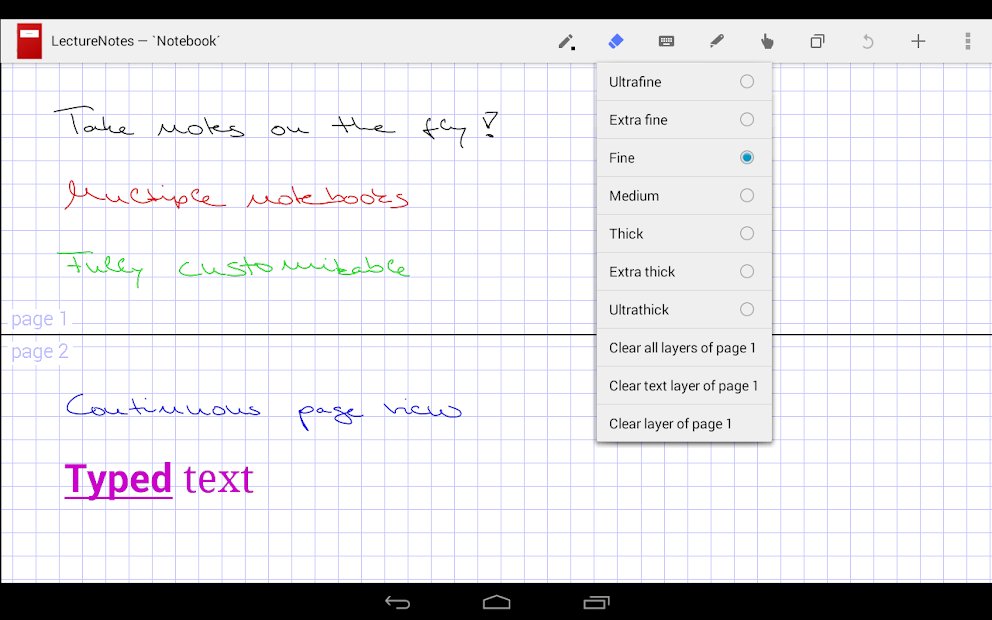 LectureNotes — `Notebook´
Take notes on the fly!
Multiple notebooks
Fully customizable
page 1
page 2
Continuous page view
Typed text
Ultrafine
Extra fine
Fine
Medium
Thick
Extra thick
Ultrathick
Clear all layers of page 1
Clear text layer of page 1
Clear layer of page 1